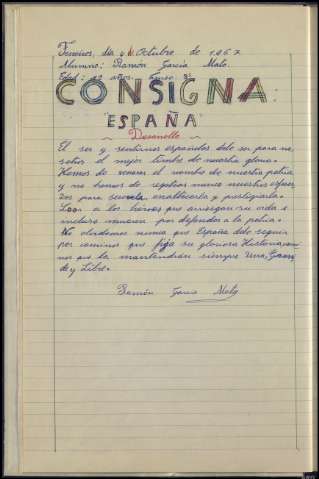 Ferreiros, día 4 Octubre de 1.967
Alumno: Ramón García Mato.
Edad: 12 años. Curso 8º
CONSIGNA:
"ESPAÑA"
Desarrollo
El ser y sentirnos españoles debe ser para no-
sotros el mejor timbre de nuestra gloria.
Hemos de conocer el nombre de nuestra patria
y no hemos de regatear nunca nuestros esfuer-
zos para servirla, enaltecerla y prestigiarla.
Loor a los héroes que arriesgan su vida e
incluso mueren por defender a la patria.
No olvidemos nunca que España debe seguir
por caminos que fija su gloriosa Historia, cami-
nos que la mantendrán siempre Una, Gran-
de y Libre.
Ramón García Mato